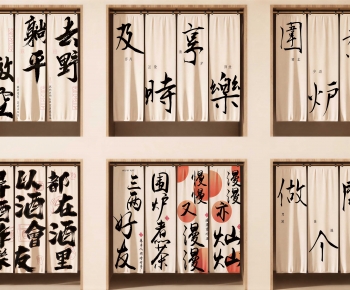 去野
躺平
放空
及
時
享
樂
圍
炉
都在酒里
以酒會友
三两好友
围炉煮茶
慢慢又漫漫
漫漫亦灿灿
做
个